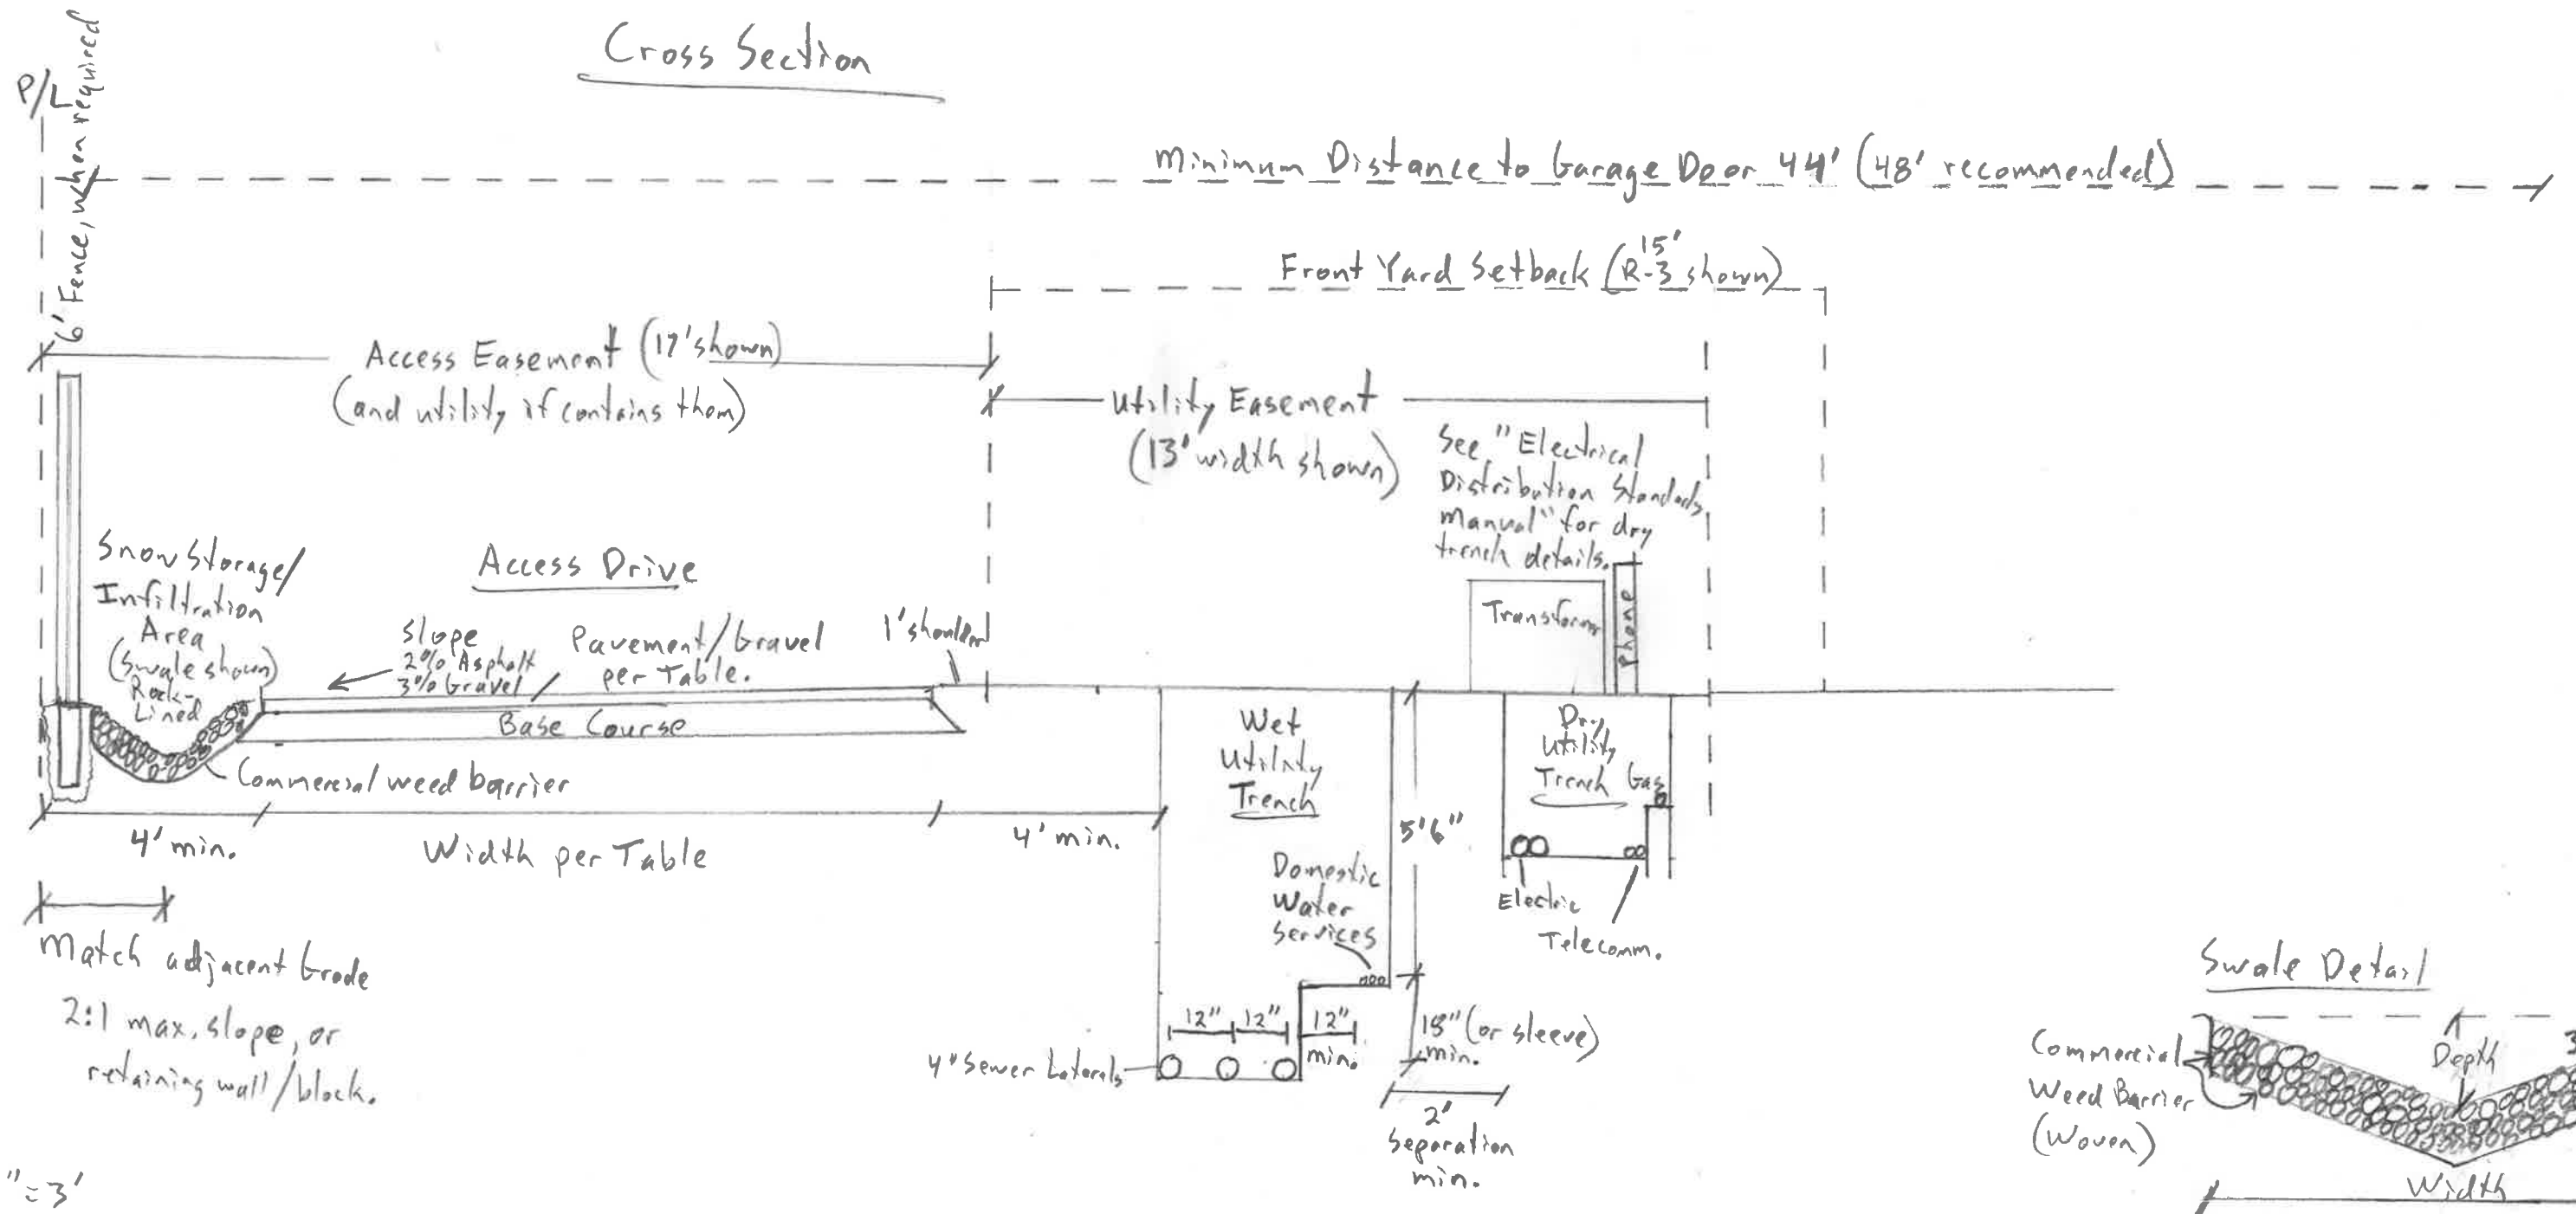 Cross Section
P/L
6' Fence, when required
Minimum Distance to Garage Door 44' (48' recommended)
15'
Front Yard Setback (R-3 shown)
Access Easement (17' shown)
(and utility if contains them)
Utility Easement
(13' width shown)
See "Electrical
Distribution Standards
Manual" for dry
trench details.
Snow Storage/
Infiltration
Area
(Swale shown)
Rock-
Lined
Access Drive
Slope
2% Asphalt
3% Gravel
Pavement/Gravel
per Table.
1' shoulder
Transformer
Phone
Base Course
Commercial weed barrier
Wet
Utility
Trench
Dry
Utility
Trench
Gas
4' min.
Width per Table
4' min.
5'6"
Electric
Telecomm.
Domestic
Water
Services
Match adjacent Grade
2:1 max. slope, or
retaining wall/block.
12"
12"
12"
min.
18" (or sleeve)
min.
4" Sewer Laterals
2'
Separation
min.
Swale Detail
Commercial
Weed Barrier
(Woven)
Depth
3
Width
"=3'